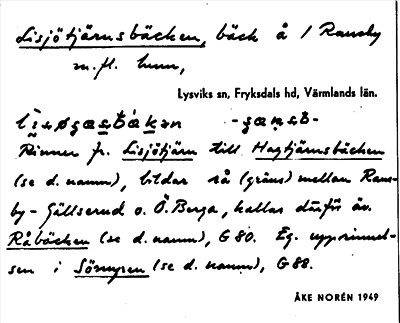 Lisjötjärnsbäcken, bäck å / Ransby
m.fl. hmn,
Lysviks sn, Fryksdals hd, Värmlands län.
Rinner fr. Lisjötjärn till Hagtjärnsbäcken
(se d. namn), bildar rå (gräns) mellan Rans-
by - Gällserud o. Ö. Berga, kallas därför äv.
Råbäcken (se d. namn), G 80. Eg. upprinnel-
sen i Sörmyren (se d. namn), G 88.
ÅKE NORÉN 1949